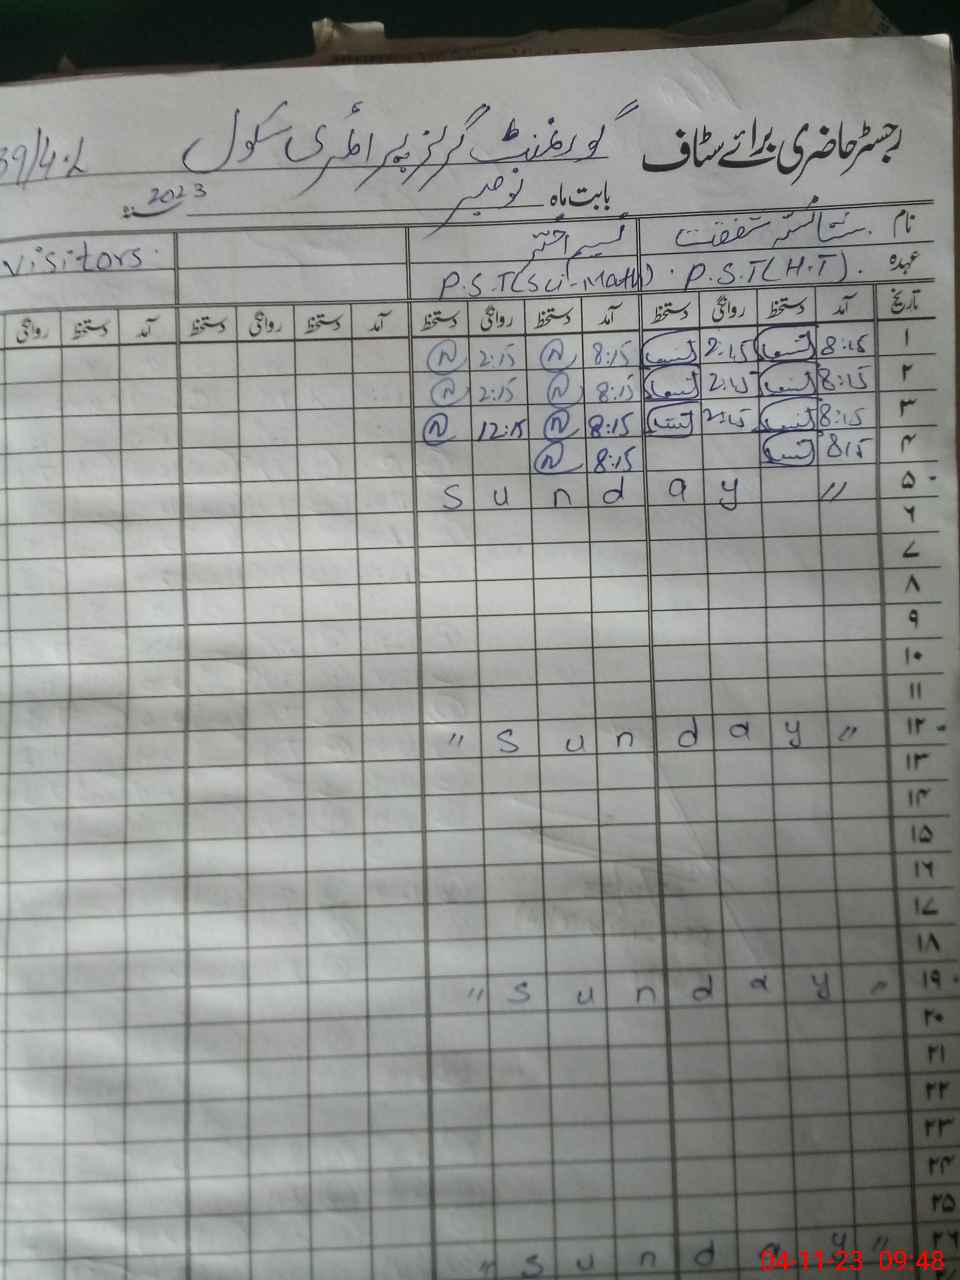 رجسٹر حاضری برائے سٹاف گورنمنٹ گرلز پرائمری سکول 39/4.L
بابت ماہ نومبر 2023
نام شائستہ شفقت نسیم اختر visitors.
عہدہ P.S.T(H.T). P.S.T(Sci-Math)
تاریخ آمد دستخط روانگی دستخط آمد دستخط روانگی دستخط آمد دستخط روانگی دستخط آمد دستخط روانگی
۱ 8:15 2:15 8:15 2:15
۲ 8:15 2:15 8:15 2:15
۳ 8:15 2:15 8:15 12:15
۴ 8:15 8:15
۵ " Sunday
۶
۷
۸
۹
۱۰
۱۱
۱۲ " Sunday "
۱۳
۱۴
۱۵
۱۶
۱۷
۱۸
۱۹ " Sunday "
۲۰
۲۱
۲۲
۲۳
۲۴
۲۵
۲۶ " Sunday "
04-11-23 09:48